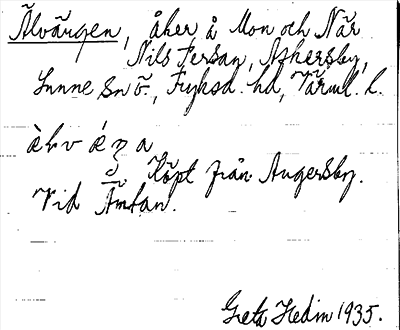 Älvängen, åker å Mon och När
Nils Persan, Askersby,
Sunne sn ö., Fryksd. hd, Värml. l.
Köpt från Augersby.
Vid Ämtan.
Greta Hedin 1935.